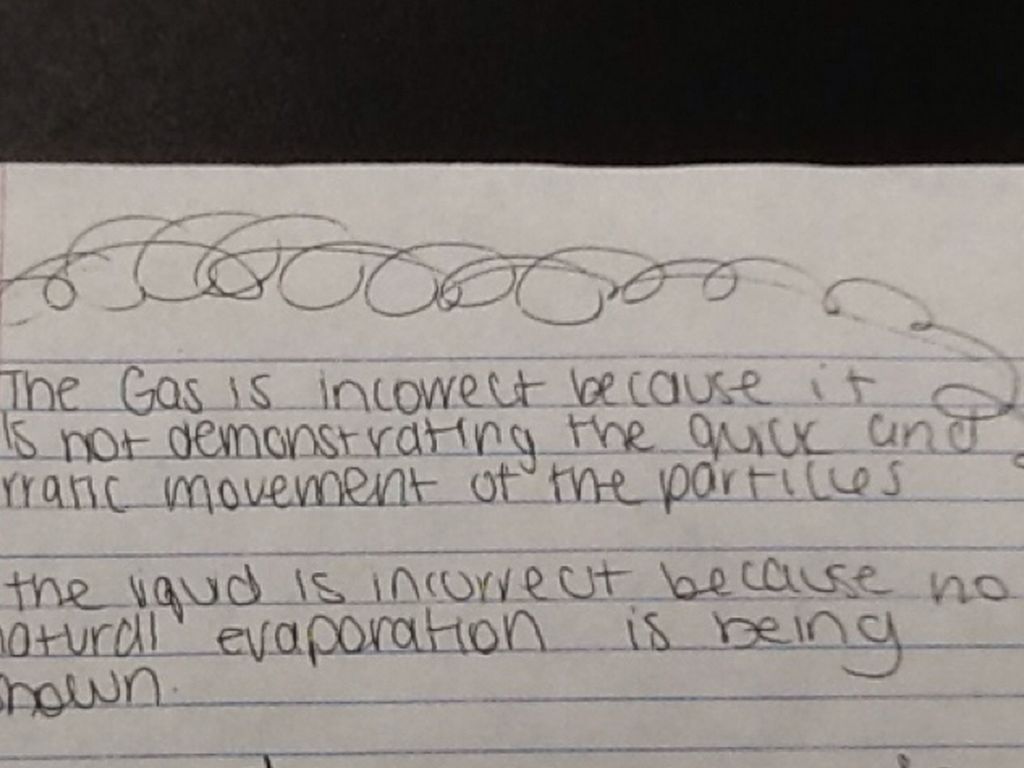 The Gas is incorrect because it
is not demonstrating the quick and
rratic movement of the particles
the liqud is incorrect because no
natural evaporation is being
hown.